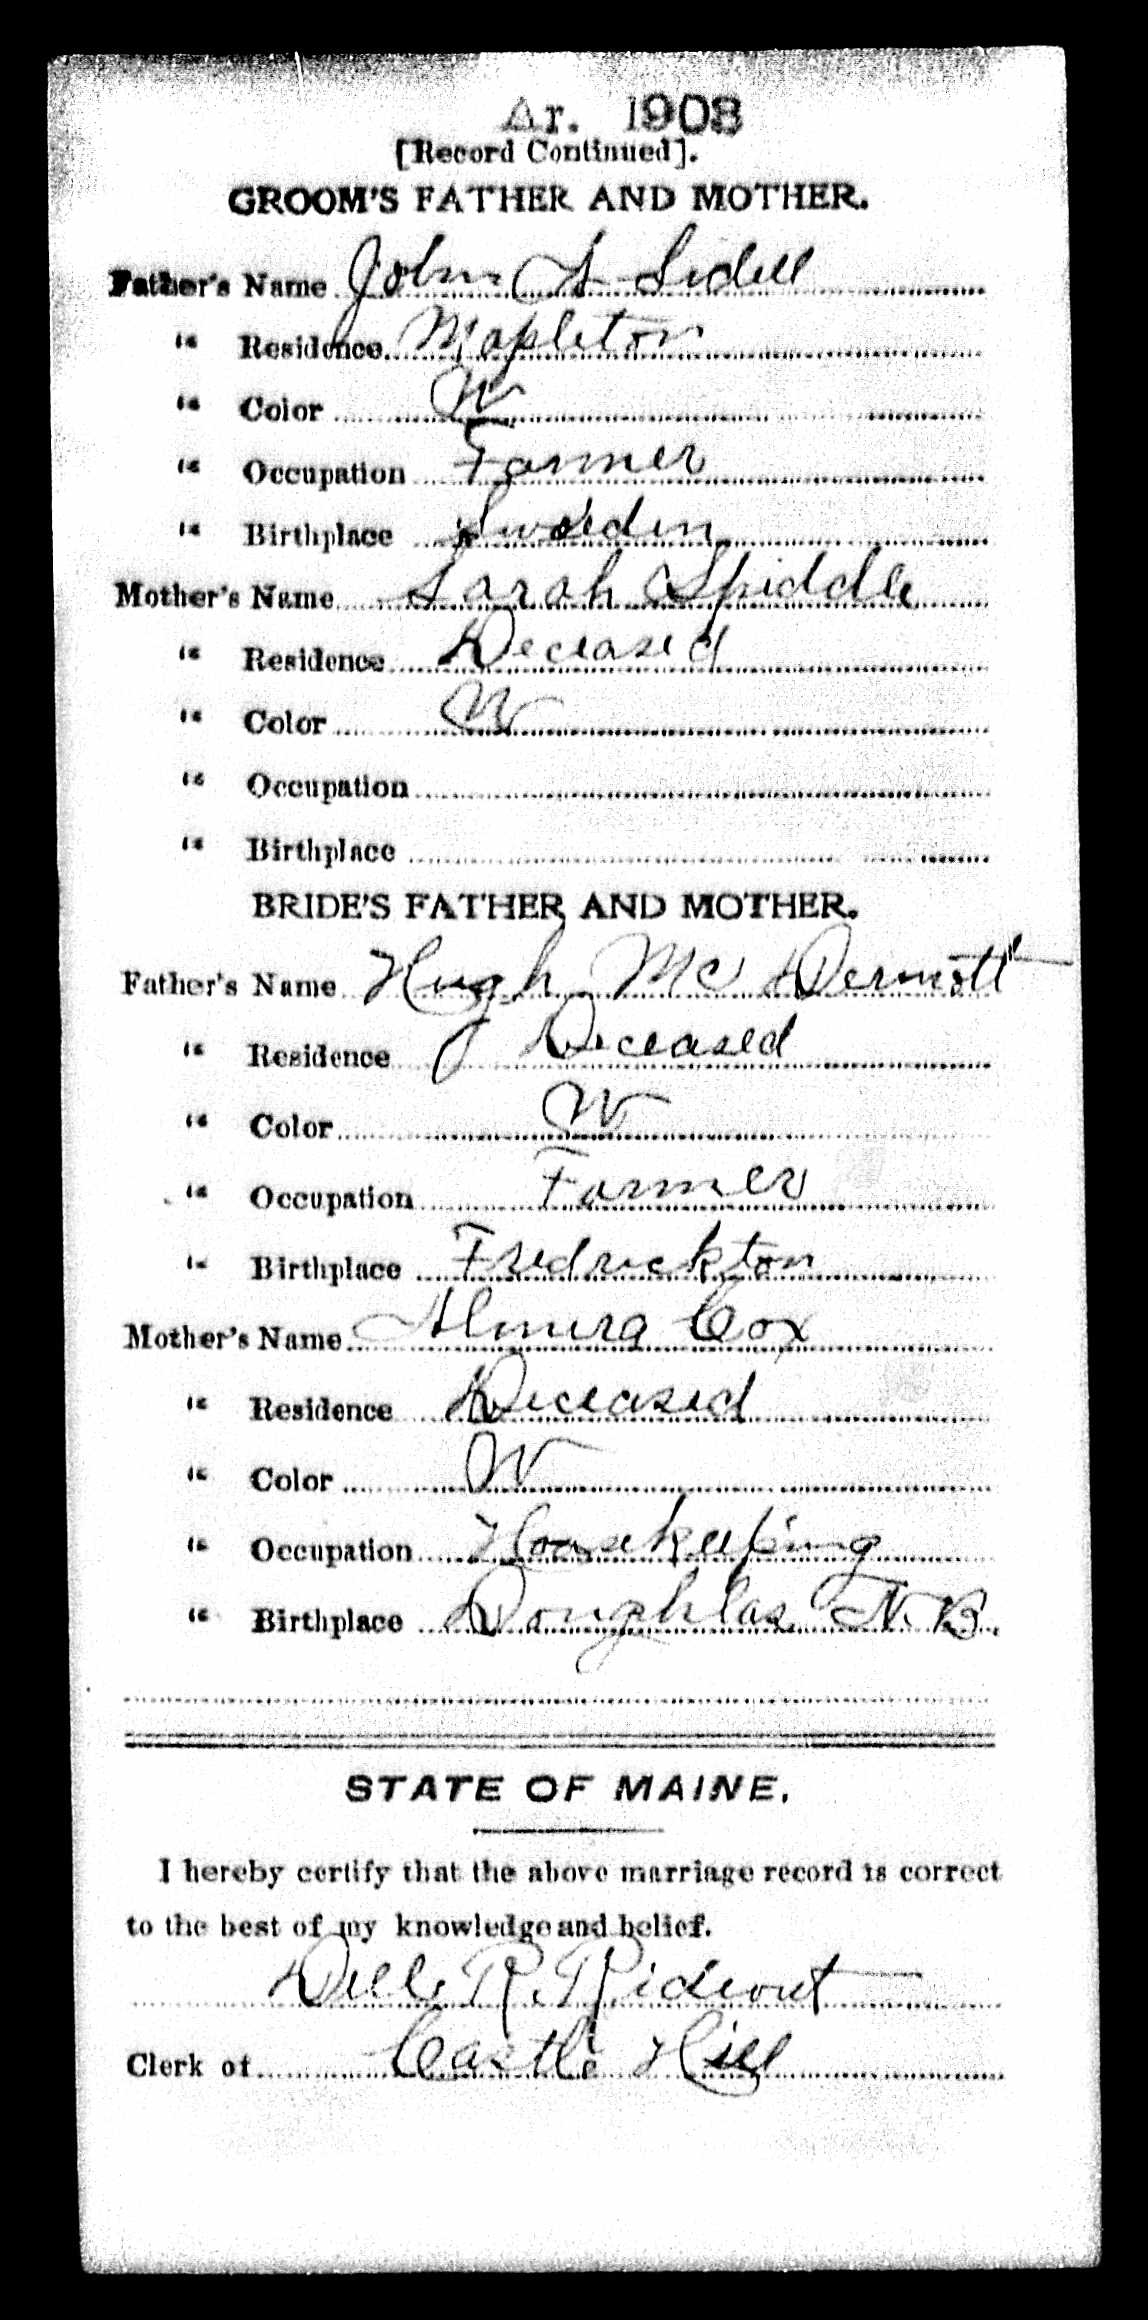 Ar. 1908
[Record Continued].
GROOM'S FATHER AND MOTHER.
Father's Name John S Sidell
" Residence Mapleton
" Color W
" Occupation Farmer
" Birthplace Sweden
Mother's Name Sarah Spiddle
" Residence Deceased
" Color W
" Occupation
" Birthplace
BRIDE'S FATHER AND MOTHER.
Father's Name Hugh Mc Dermott
" Residence Deceased
" Color W
" Occupation Farmer
" Birthplace Fredrickton
Mother's Name Almira Cox
" Residence Deceased
" Color W
" Occupation Housekeeping
" Birthplace Doughlas N.B.
STATE OF MAINE.
I hereby certify that the above marriage record is correct
to the best of my knowledge and belief.
R. Rideout
Clerk of Castle Hill